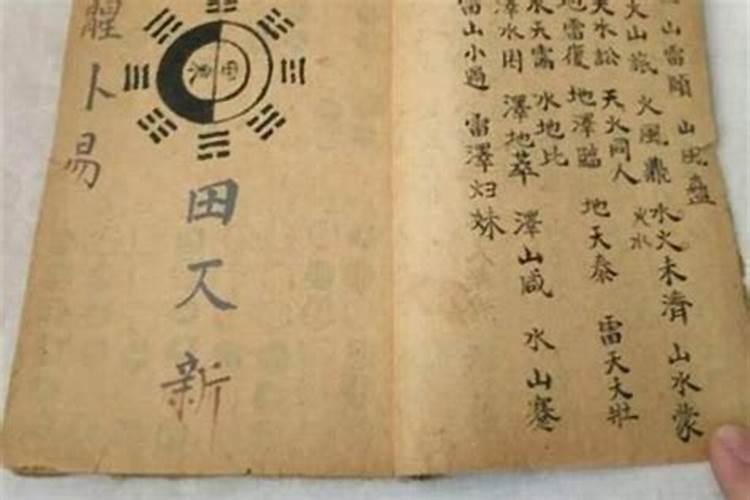 山雷頤 山風蠱
火水
水火未濟 山水蒙
火山旅 火風鼎
天水訟 天火同人
地雷復 地澤臨 地天泰 雷天大壯
水天需 水地比
澤水困 澤地萃 澤山咸 水山蹇
雷山小過 雷澤归妹
田
新
卜易